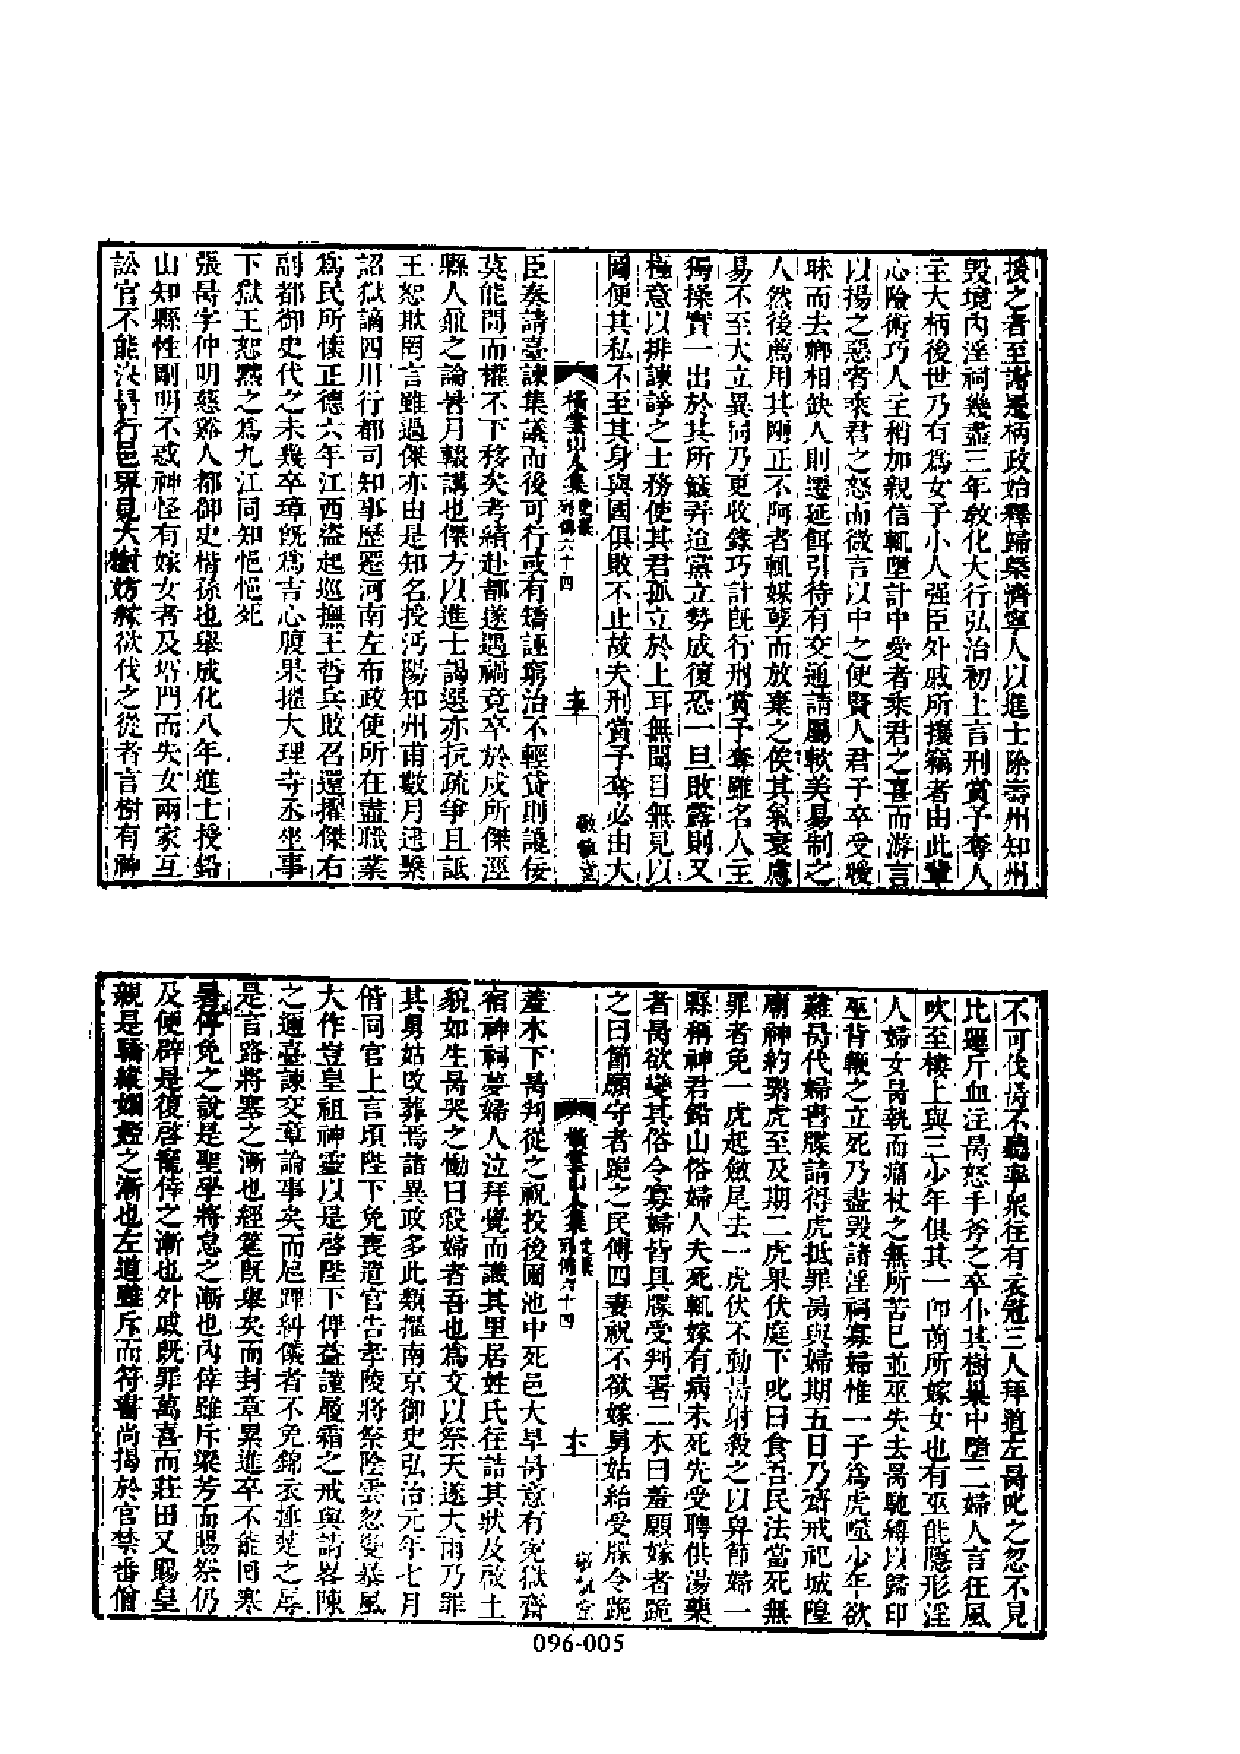 援之者至謝遷柄政始釋歸榮濟寧人以進士除壽州知州
毀境內淫祠幾盡三年敎化大行弘治初上言刑賞予奪人
主大柄後世乃有爲女子小人强臣外戚所攘竊者由此輩
心險術巧人主稍加親信輒墮計中愛者乘君之喜而游言
以揚之惡者乘君之怒而微言以中之使賢人君子卒受曖
昧而去卿相缺人則遷延餌引待有交通請屬軟美易制之
人然後薦用其剛正不阿者輒媒孽而放棄之俟其氣衰慮
易不至大立異同乃更收錄巧計旣行刑賞予奪雖名人主
獨操實一出於其所簸弄迨黨立勢成復恐一旦敗露則又
極意以排諫諍之士務使其君孤立於上耳無聞目無見以
圖便其私不至其身與國俱敗不止故夫刑賞予奪必由大
橫雲山人集 史藁 列傳六十四 敬愼堂
臣奏請臺諫集議而後可行或有矯誣窮治不輕貸則讒佞
莫能間而權不下移矣考績赴都遂遇禍竟卒於戍所傑涇
縣人鼐之論暑月輟講也傑方以進士謁選亦抗疏爭且詆
王恕欺罔言雖過傑亦由是知名授沔陽知州甫數月逮繫
詔獄謫四川行都司知事歷遷河南左布政使所在盡職業
爲民所懷正德六年江西盜起巡撫王哲兵敗召還擢傑右
副都御史代之未幾卒璋旣爲吉心腹果擢大理寺丞坐事
下獄王恕黜之爲九江同知悒悒死
張昺字仲明慈谿人都御史楷孫也舉成化八年進士授鉛
山知縣性剛明不惑神怪有嫁女者及塔門而失女兩家互
訟官不能決昺行邑界見大樹妨稼欲伐之從者言樹有神
不可伐昺不聽率衆往有衣冠三人拜道左昺叱之忽不見
比運斤血注昺怒手斧之卒仆其樹巢中墮二婦人言狂風
吹至樓上與三少年俱其一卽前所嫁女也有巫能隱形淫
人婦女昺執而痛杖之無所苦已並巫失去昺馳縛以歸印
巫背鞭之立死乃盡毀諸淫祠寡婦惟一子爲虎噬少年欲
難昺代婦書牒請得虎抵罪昺與婦期五日乃齋戒祀城隍
廟神約繫虎至及期二虎果伏庭下叱曰食吾民法當死無
罪者免一虎起斂尾去一虎伏不動昺射殺之以畀節婦一
縣稱神君鉛山俗婦人夫死輒嫁有病未死先受聘供湯藥
者昺欲變其俗令寡婦皆具牒受判署二木曰羞願嫁者跪
之曰節願守者跪之民傅四妻祝不欲嫁舅姑紿受牒令跪
橫雲山人集 史藁 列傳六十四 敬愼堂
羞木下昺判從之祝投後園池中死邑大旱昺意有寃獄齋
宿神祠夢婦人泣拜覺而識其里居姓氏往詰其狀及啟土
貌如生昺哭之慟曰殺婦者吾也爲文以祭天遂大雨乃罪
其舅姑改葬焉諸異政多此類擢南京御史弘治元年七月
偕同官上言頃陛下免喪遣官告孝陵將祭陰雲忽變暴風
大作豈皇祖神靈以是啓陛下俾益謹履霜之戒與請畧陳
之邇臺諫交章論事矣而扈蹕糾儀者不免錦衣捶楚之辱
是言路將塞之漸也經筵旣舉矣而封章累進卒不能回寒
暑停免之說是聖學將怠之漸也內倖雖斥梁芳而賜祭仍
及便辟是復啓寵倖之漸也外戚旣罪萬喜而莊田又賜皇
親是驕縱姻婭之漸也左道雖斥而符書尚揭於官禁番僧
096-005